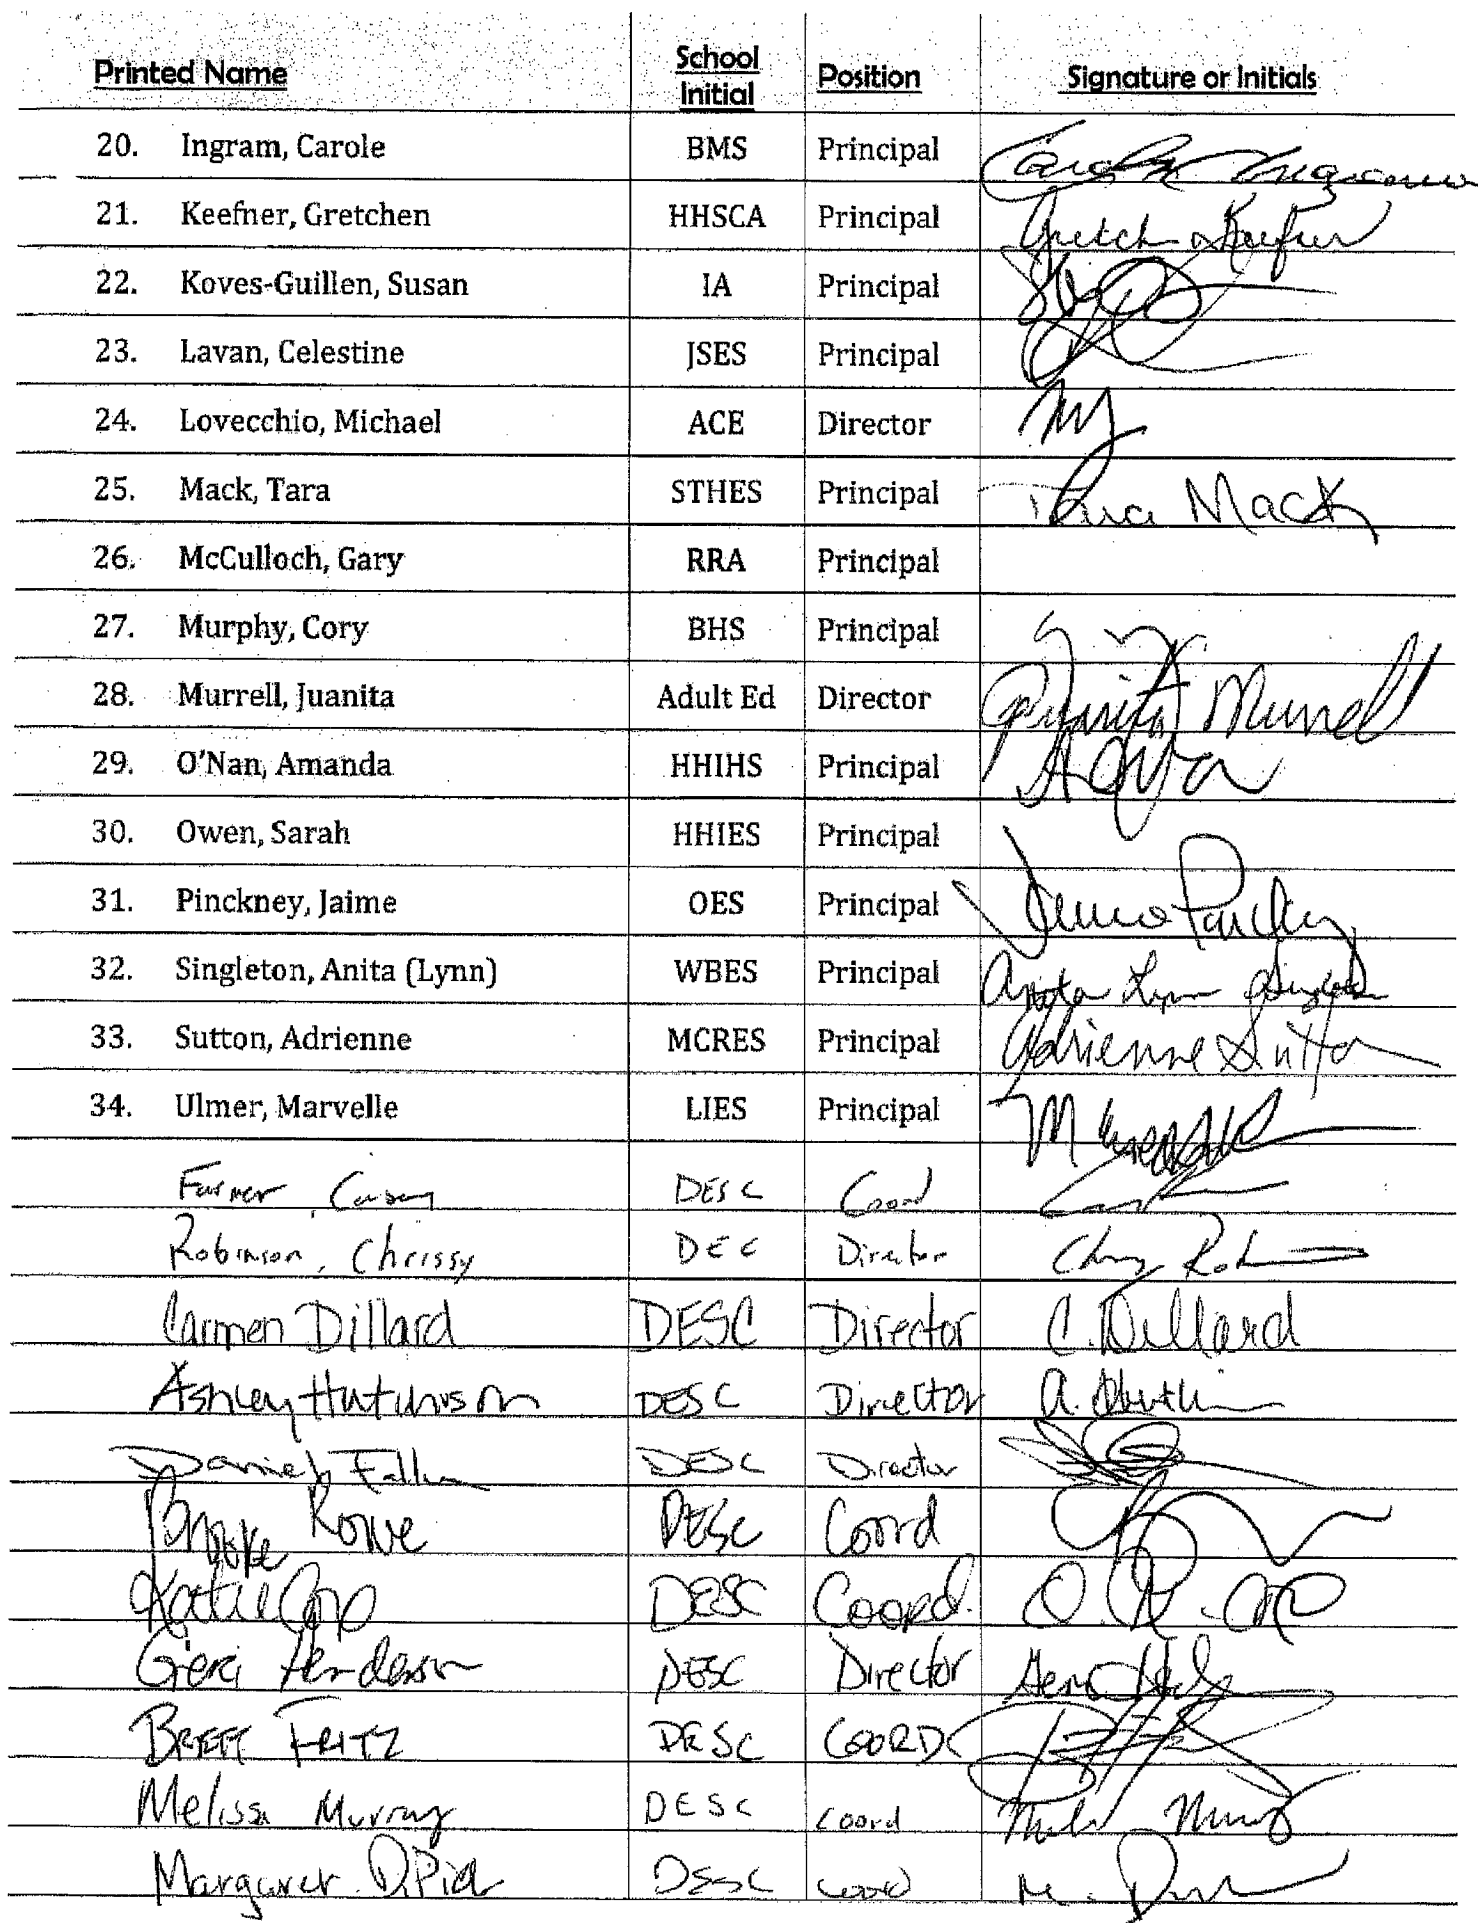 Printed Name School Initial Position Signature or Initials
20. Ingram, Carole BMS Principal Carole Ingram
21. Keefner, Gretchen HHSCA Principal Gretchen Keefner
22. Koves-Guillen, Susan IA Principal
23. Lavan, Celestine JSES Principal
24. Lovecchio, Michael ACE Director
25. Mack, Tara STHES Principal Tara Mack
26. McCulloch, Gary RRA Principal
27. Murphy, Cory BHS Principal
28. Murrell, Juanita Adult Ed Director Juanita Murrell
29. O'Nan, Amanda HHIHS Principal
30. Owen, Sarah HHIES Principal
31. Pinckney, Jaime OES Principal
32. Singleton, Anita (Lynn) WBES Principal Anita Lynn
33. Sutton, Adrienne MCRES Principal Adrienne Sutton
34. Ulmer, Marvelle LIES Principal
DESC Coord
Robinson, Chrissy DEC Director
Carmen Dillard DESC Director C. Dillard
Ashley Hutchison DESC Director A.
Daniel Fallon DESC Director
Brooke Rowe DESC Coord
Katie DESC Coord.
Geri Henderson DESC Director
BRETT FRITZ DESC COORD
Melissa Murray DESC Coord
Margaret DESC Coord M.